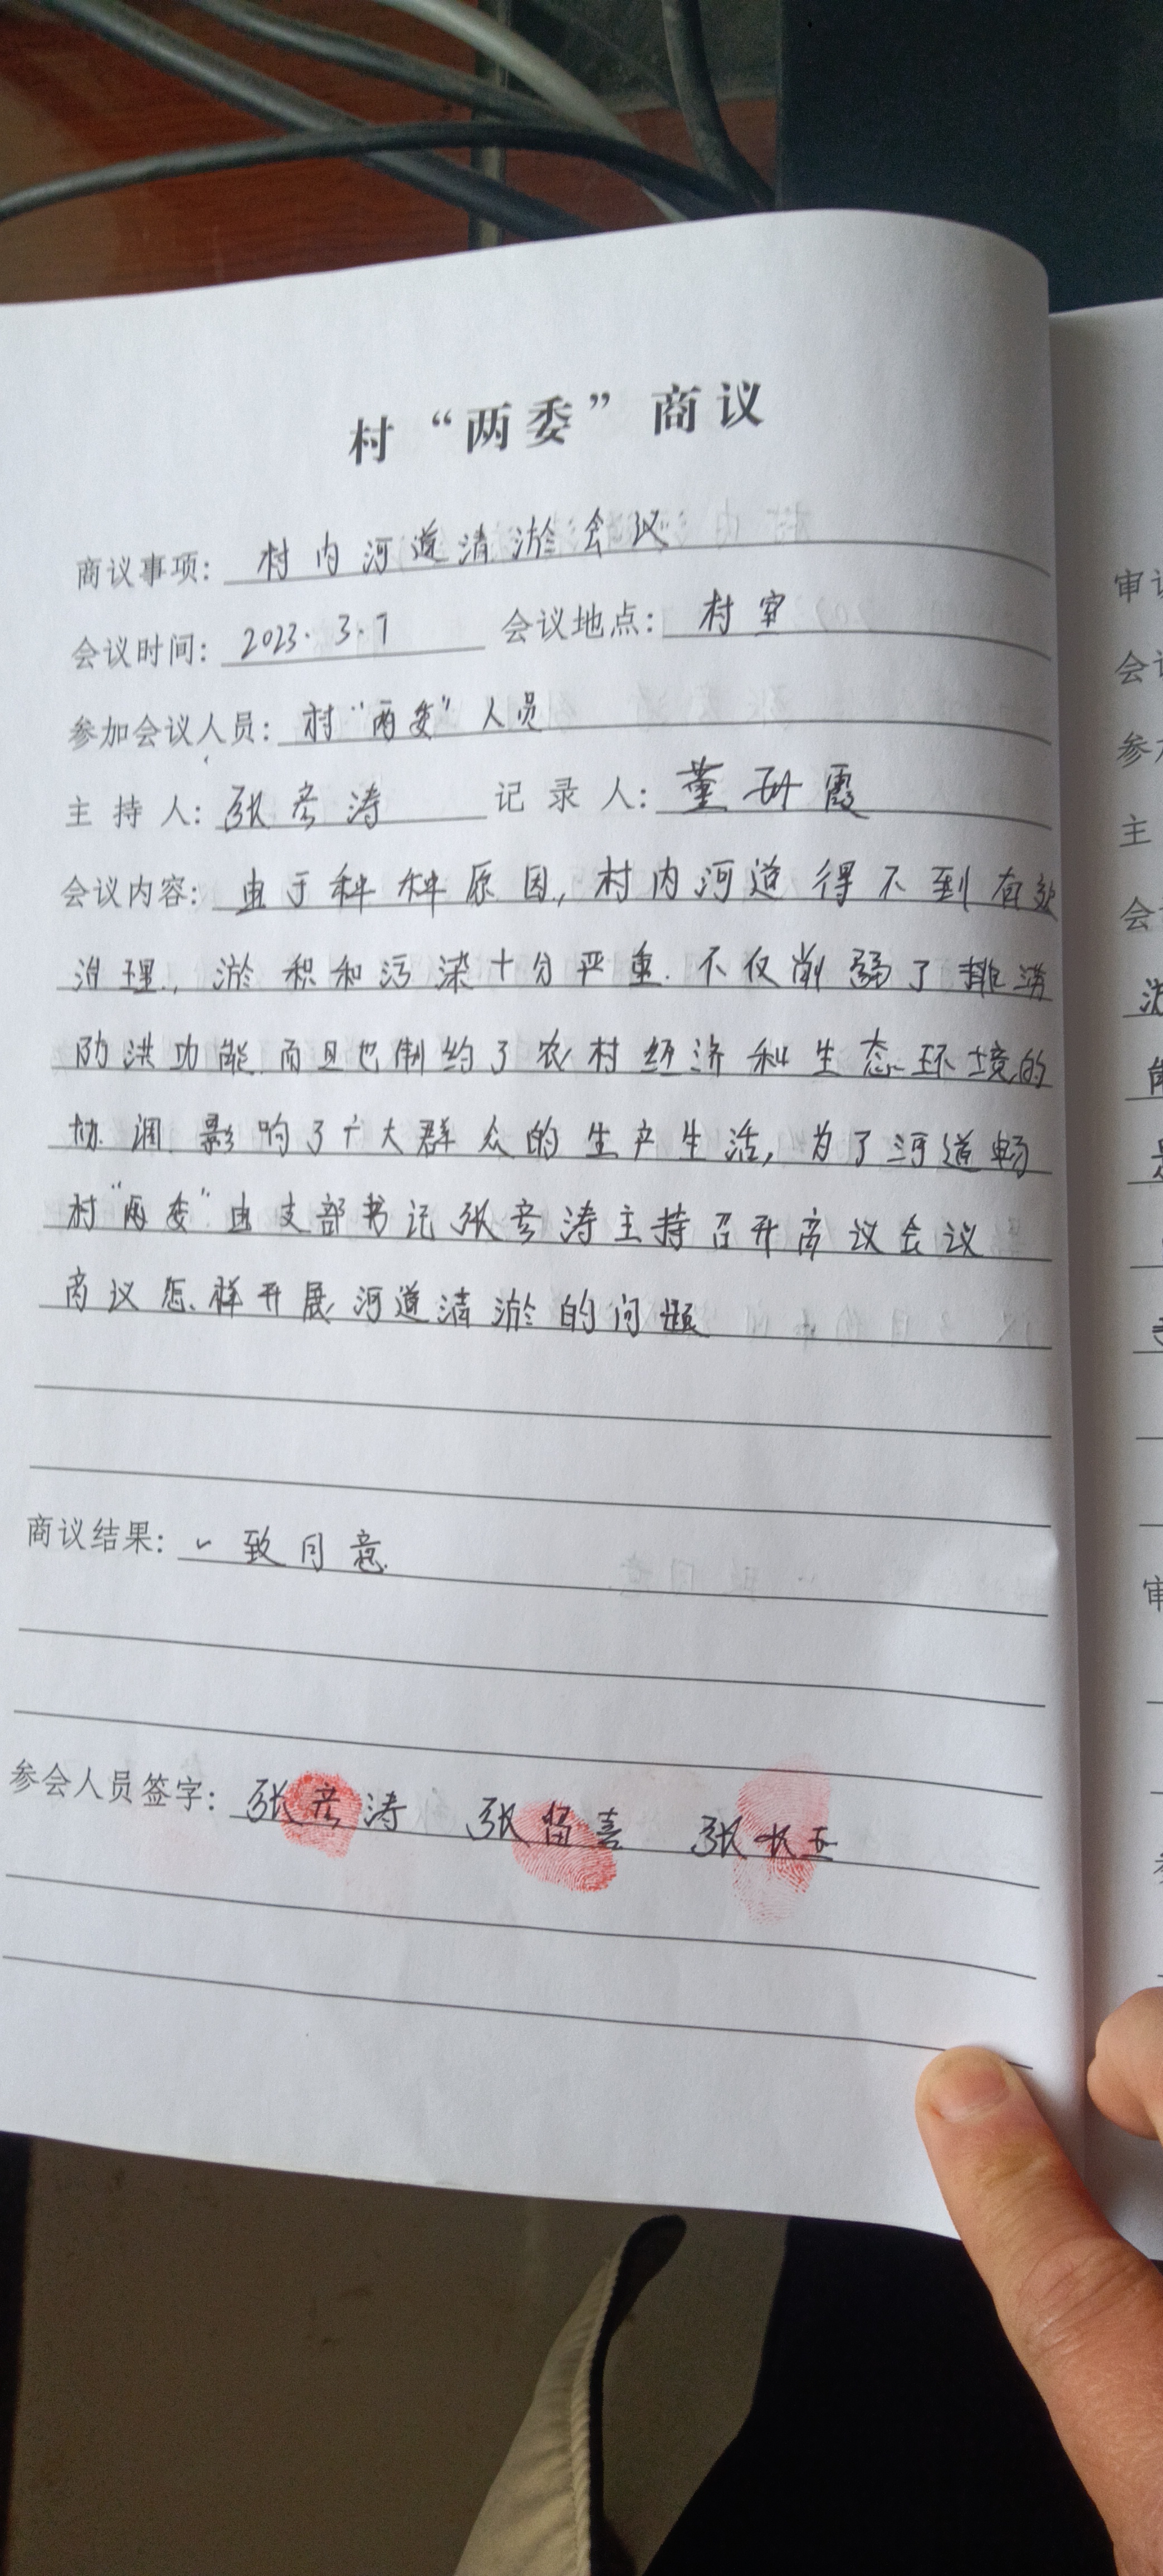 村“两委”商议
商议事项: 村内河道清淤会议
会议时间: 2023.3.7 会议地点: 村室
参加会议人员: 村“两委”人员
主持人: 张彦涛 记录人: 董研霞
会议内容: 由于种种原因,村内河道得不到有效
治理,淤积和污染十分严重.不仅削弱了排涝
防洪功能.而且也制约了农村经济和生态环境的
协调.影响了广大群众的生产生活,为了河道畅
村“两委”由支部书记张彦涛主持召开商议会议
商议怎样开展河道清淤的问题
商议结果: 一致同意.
参会人员签字: 张彦涛 张留喜 张长玉
审议
会议
参加
主
会议
审